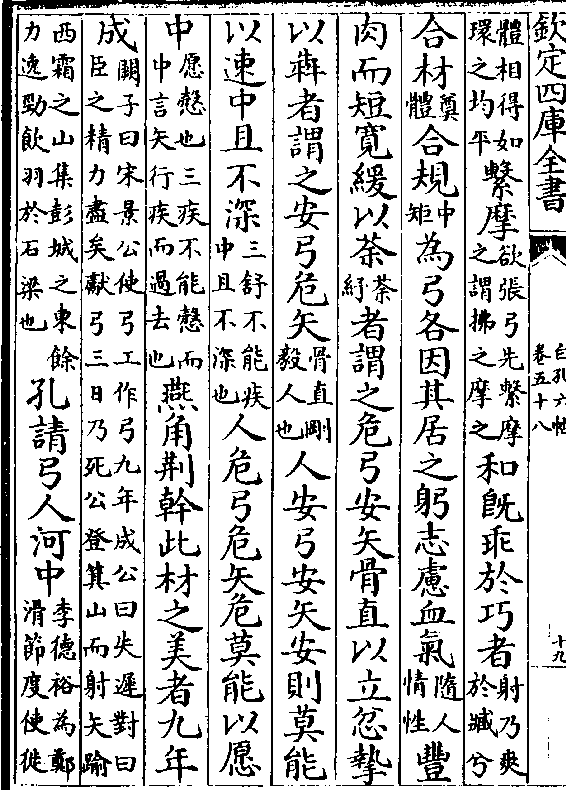 欽定四庫全書
白孔六帖
卷五十八
十九
體相得如環之均平繫摩欲張弓先繫摩之謂拂之摩之和既乖於巧者射乃爽於臧兮
合材奠體合規中矩為弓各因其居之躬志慮血氣隨人情性豐
肉而短寛緩以荼荼紓者謂之危弓安矢骨直以立忿摯
以犇者謂之安弓危矢骨直剛毅人也人安弓安矢安則莫能
以速中且不深三舒不能疾中且不深也人危弓危矢危莫能以愿
中愿慤也三疾不能慤而中言矢行疾而過去也燕角荆幹此材之美者九年
成闕子曰宋景公使弓工作弓九年成公曰失遲對曰臣之精力盡矣獻弓三日乃死公登箕山而射矢踰
西霜之山集彭城之東餘力逸勁飲羽於石梁也孔請弓人河中李德裕為鄭滑節度使徙